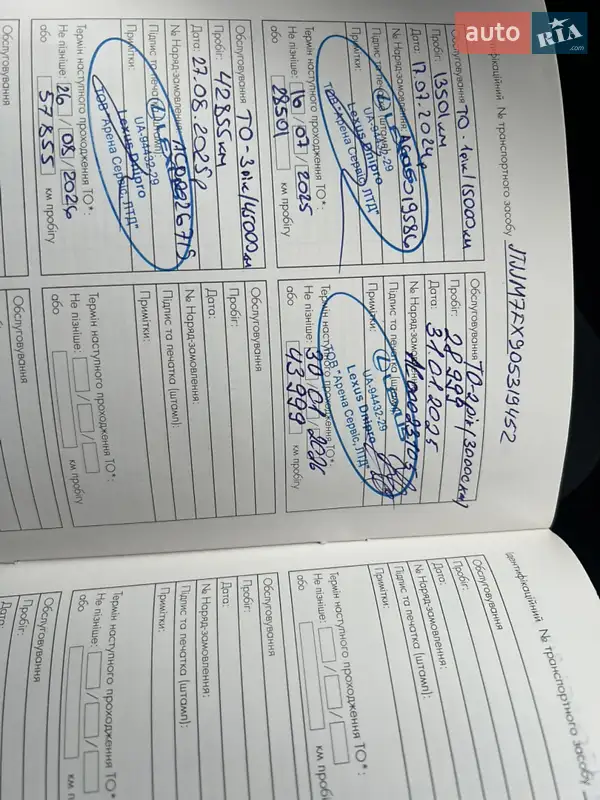 Ідентифікаційний № транспортного засобу JTJJM7FX905319452
Обслуговування ТО-1рік/15000км
Пробіг: 13501км
Дата: 17.07.2024р
№ Наряд-замовлення: АС00019586
Підпис та печатка (штамп):
Примітки:
UA-94432-29
Lexus Dnipro
ТОВ "Арена Сервіс, ЛТД"
Термін наступного проходження ТО*:
Не пізніше: 16/07/2025
або 28501 км пробігу
Обслуговування ТО-2рік/30000км
Пробіг: 28999
Дата: 31.01.2025
№ Наряд-замовлення: АС00023703
Підпис та печатка (штамп):
Примітки:
UA-94432-29
Lexus Dnipro
ТОВ "Арена Сервіс, ЛТД"
Термін наступного проходження ТО*:
Не пізніше: 30/01/2026
або 43999 км пробігу
Обслуговування ТО-3рік/45000км
Пробіг: 42855км
Дата: 27.08.2025р
№ Наряд-замовлення:
Підпис та печатка (штамп):
Примітки:
UA-94432-29
Lexus Dnipro
ТОВ "Арена Сервіс, ЛТД"
Термін наступного проходження ТО*:
Не пізніше: 26/08/2026
або 57855 км пробігу
Обслуговування
Пробіг:
Дата:
№ Наряд-замовлення:
Підпис та печатка (штамп):
Примітки:
Термін наступного проходження ТО*:
Не пізніше:
або км пробігу
Обслуговування
Обслуговування
Ідентифікаційний № транспортного засобу
Обслуговування
Пробіг:
Дата:
№ Наряд-замовлення:
Підпис та печатка (штамп):
Примітки:
Термін наступного проходження ТО*:
Не пізніше:
або км пробі
Обслуговування
Пробіг:
Дата:
№ Наряд-замовлення:
Підпис та печатка (штамп):
Примітки:
Термін наступного проходження ТО*
Не пізніше:
або км п
Обслуговування
Пробіг:
Дата:
auto RIA.com